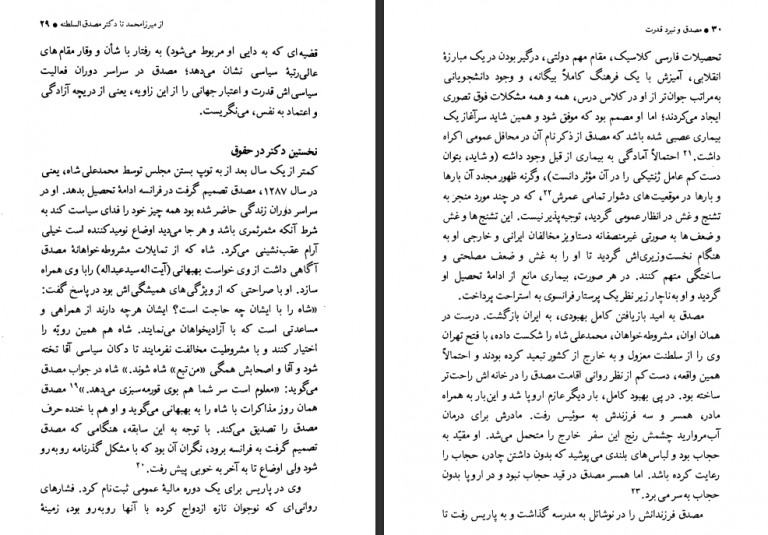 از میرزامحمد تا دکتر مصدق‌السلطنه ● ۲۹
قضیه‌ای که به دایی او مربوط می‌شود) به رفتار با شأن و وقار مقام‌های
عالی‌رتبهٔ سیاسی نشان می‌دهد؛ مصدق در سراسر دوران فعالیت
سیاسی‌اش قدرت و اعتبار جهانی را از این زاویه، یعنی از دریچه آزادگی
و اعتماد به نفس، می‌نگریست.
نخستین دکتر در حقوق
کمتر از یک سال بعد از به توپ بستن مجلس توسط محمدعلی شاه، یعنی
در سال ۱۲۸۷، مصدق تصمیم گرفت در فرانسه ادامهٔ تحصیل بدهد. او در
سراسر دوران زندگی حاضر شده بود همه چیز خود را فدای سیاست کند به
شرط آنکه مثمرثمری باشد و هر جا می‌دید اوضاع نومیدکننده است خیلی
آرام عقب‌نشینی می‌کرد. شاه که از تمایلات مشروطه‌خواهانهٔ مصدق
آگاهی داشت از وی خواست بهبهانی (آیت‌اله سیدعبداله) را با وی همراه
سازد. او با صراحتی که از ویژگی‌های همیشگی‌اش بود در پاسخ گفت:
«شاه را با ایشان چه حاجت است؟ ایشان هرچه دارند از همراهی و
مساعدتی است که با آزادیخواهان می‌نمایند. شاه هم همین رویّه را
اختیار کنند و با مشروطیت مخالفت نفرمایند تا دکان سیاسی آقا تخته
شود و آقا و اصحابش همگی «من تبع» شاه شوند.» شاه در جواب مصدق
می‌گوید: «معلوم است سر شما هم بوی قورمه‌سبزی می‌دهد.»۱۹ مصدق
همان روز مذاکرات با شاه را به بهبهانی می‌گوید و او هم با خنده حرف
مصدق را تصدیق می‌کند. با توجه به این سابقه، هنگامی که مصدق
تصمیم گرفت به فرانسه برود، نگران آن بود که با مشکل گذرنامه روبه‌رو
شود ولی اوضاع تا به آخر به خوبی پیش رفت.۲۰
وی در پاریس برای یک دوره مالیهٔ عمومی ثبت‌نام کرد. فشارهای
روانی‌ای که نوجوان تازه ازدواج کرده با آنها روبه‌رو بود، زمینهٔ
۳۰ ● مصدق و نبرد قدرت
تحصیلات فارسی کلاسیک، مقام مهم دولتی، درگیر بودن در یک مبارزهٔ
انقلابی، آمیزش با یک فرهنگ کاملاً بیگانه، و وجود دانشجویانی
به‌مراتب جوان‌تر از او در کلاس درس، همه و همه مشکلات فوق تصوری
ایجاد می‌کردند؛ اما او مصمم بود که موفق شود و همین شاید سرآغاز یک
بیماری عصبی شده باشد که مصدق از ذکر نام آن در محافل عمومی اکراه
داشت.۲۱ احتمالاً آمادگی به بیماری از قبل وجود داشته (و شاید، بتوان
دست‌کم عامل ژنتیکی را در آن مؤثر دانست)، وگرنه ظهور مجدد آن بارها
و بارها در موقعیت‌های دشوار تمامی عمرش۲۲، که در چند مورد منجر به
تشنج و غش در انظار عمومی گردید، توجیه‌پذیر نیست. این تشنج‌ها و غش
و ضعف‌ها به صورتی غیرمنصفانه دستاویز مخالفان ایرانی و خارجی او به
هنگام نخست‌وزیری‌اش گردید تا او را به غش و ضعف مصلحتی و
ساختگی متهم کنند. در هر صورت، بیماری مانع از ادامهٔ تحصیل او
گردید و او به‌ناچار زیر نظر یک پرستار فرانسوی به استراحت پرداخت.
مصدق به امید بازیافتن کامل بهبودی، به ایران بازگشت. درست در
همان اوان، مشروطه‌خواهان، محمدعلی شاه را شکست داده، با فتح تهران
وی را از سلطنت معزول و به خارج از کشور تبعید کرده بودند و احتمالاً
همین واقعه، دست‌کم از نظر روانی اقامت مصدق را در خانه‌اش راحت‌تر
ساخته بود. در پی بهبود کامل، بار دیگر عازم اروپا شد و این‌بار به همراه
مادر، همسر و سه فرزندش به سوئیس رفت. مادرش برای درمان
آب‌مروارید چشمش رنج این سفر خارج را متحمل می‌شد. او مقیّد به
حجاب بود و لباس‌های بلندی می‌پوشید که بدون داشتن چادر، حجاب را
رعایت کرده باشد. اما همسر مصدق در قید حجاب نبود و در اروپا بدون
حجاب به‌سر می‌برد.۲۳
مصدق فرزندانش را در نوشاتل به مدرسه گذاشت و به پاریس رفت تا